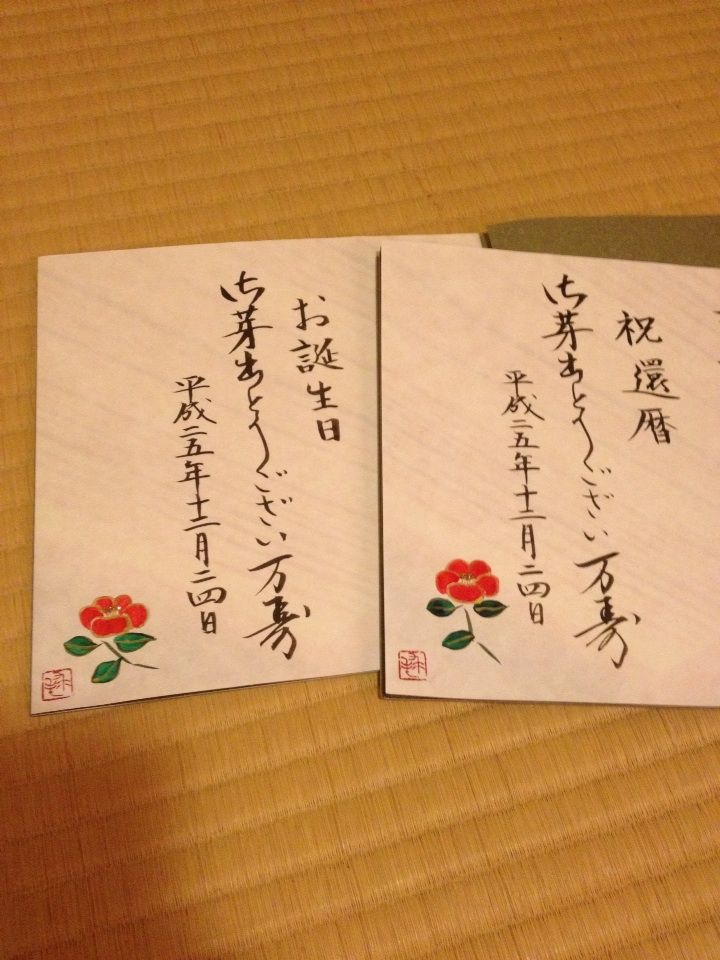 お誕生日
御芽出とうございい万寿
平成二五年十二月二四日
祝還暦
御芽出とうございい万寿
平成二五年十二月二四日